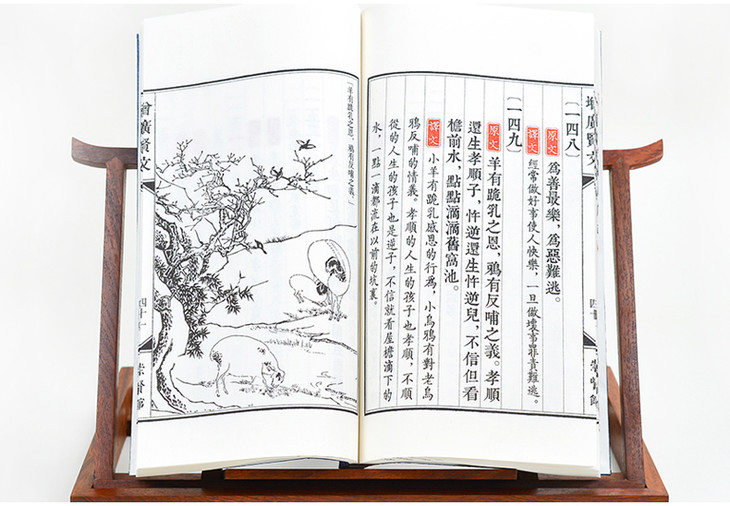 增廣賢文
〔一四八〕
原文 爲善最樂，爲惡難逃。
譯文 經常做好事使人快樂，一旦做壞事罪責難逃。
〔一四九〕
原文 羊有跪乳之恩，鴉有反哺之義。孝順
還生孝順子，忤逆還生忤逆兒，不信但看
檐前水，點點滴滴舊窩池。
譯文 小羊有跪乳感恩的行爲，小烏鴉有對老烏
鴉反哺的情義。孝順的人生的孩子也孝順，不順
從的人生的孩子也是逆子，不信就看屋檐滴下的
水，一點一滴都流在以前的坑裏。
四十
崇賢館
〔羊有跪乳之恩，鴉有反哺之義〕
增廣賢文
四十一
崇賢館